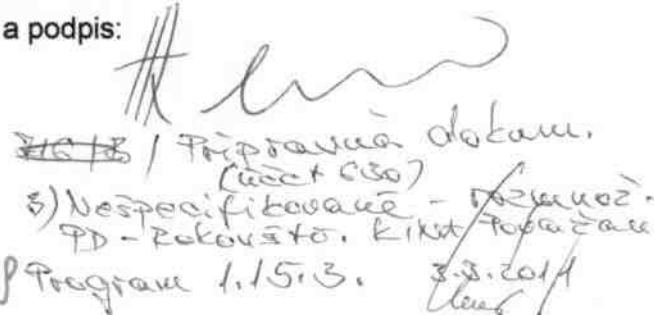 a podpis:
/ Prípravná dokum.
(účet 630)
3) Nešpecifikované - rozmnož.
PD -
Program 1.15.3. 3.3.2011